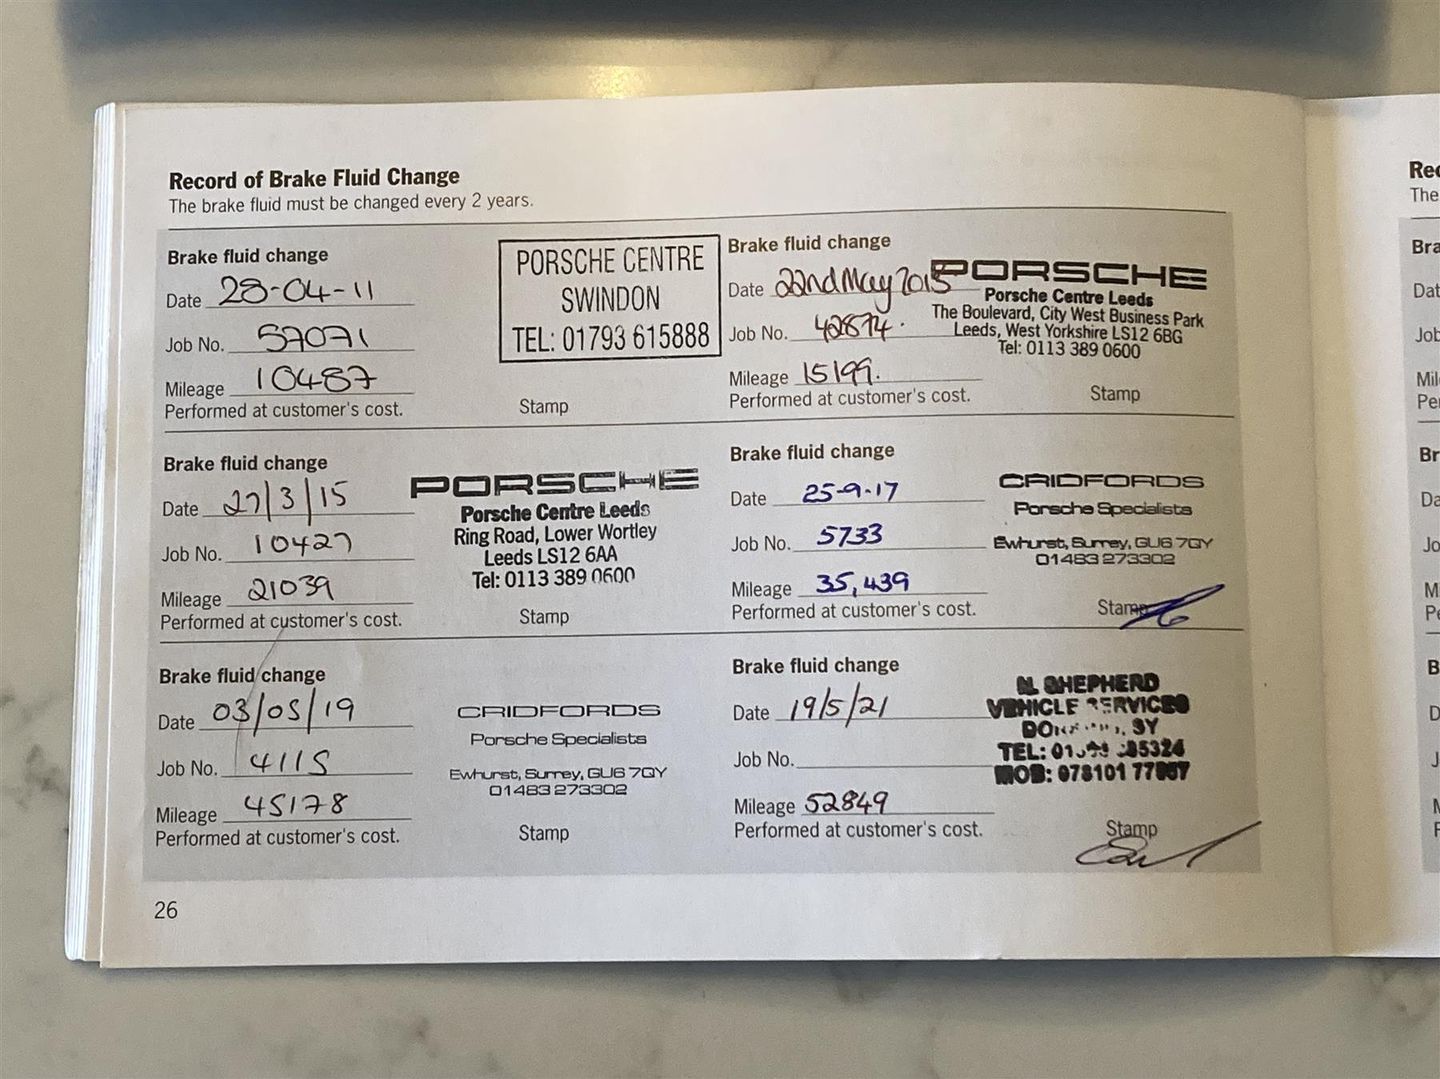 Record of Brake Fluid Change
The brake fluid must be changed every 2 years.
Brake fluid change
Date 28-04-11
Job No. 57071
Mileage 10487
Performed at customer's cost.
PORSCHE CENTRE
SWINDON
TEL: 01793 615888
Stamp
Brake fluid change
Date 22nd May 2013
Job No. 42874.
Mileage 15199.
Performed at customer's cost.
PORSCHE
Porsche Centre Leeds
The Boulevard, City West Business Park
Leeds, West Yorkshire LS12 6BG
Tel: 0113 389 0600
Stamp
Brake fluid change
Date 27/3/15
Job No. 10427
Mileage 21039
Performed at customer's cost.
PORSCHE
Porsche Centre Leeds
Ring Road, Lower Wortley
Leeds LS12 6AA
Tel: 0113 389 0600
Stamp
Brake fluid change
Date 25-9-17
Job No. 5733
Mileage 35,439
Performed at customer's cost.
CRIDFORDS
Porsche Specialists
Ewhurst, Surrey, GU6 7QY
01483 273302
Stamp
Brake fluid change
Date 03/05/19
Job No. 4115
Mileage 45178
Performed at customer's cost.
CRIDFORDS
Porsche Specialists
Ewhurst, Surrey, GU6 7QY
01483 273302
Stamp
Brake fluid change
Date 19/5/21
Job No.
Mileage 52849
Performed at customer's cost.
N. SHEPHERD
VEHICLE SERVICES
TEL:
MOB: 078101
Stamp
26
Rec
The
Bra
Dat
Job
Mil
Br